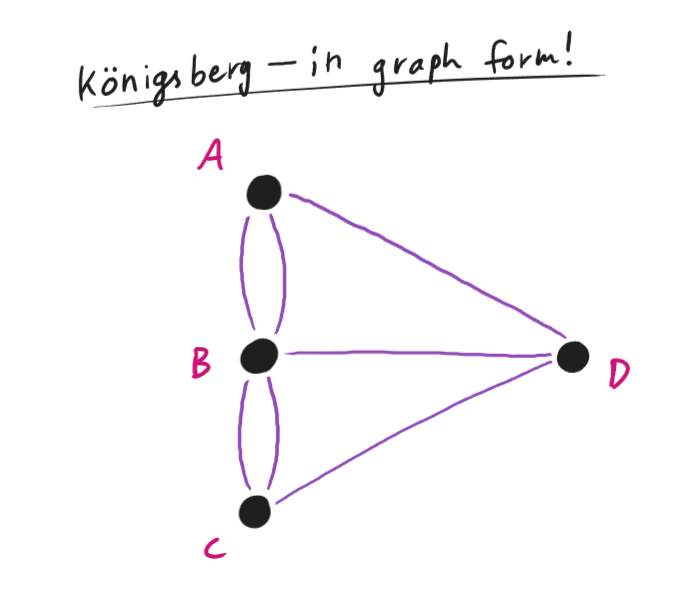 Königsberg – in graph form!
A
B
D
C